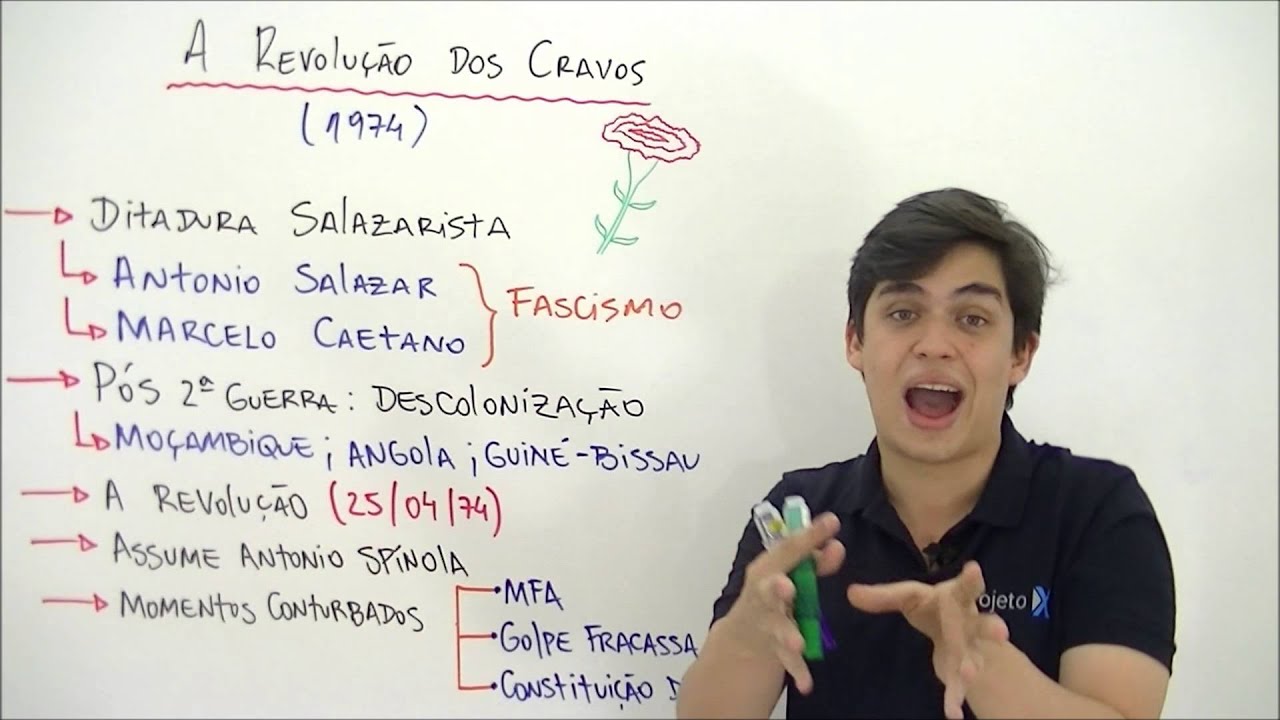 A REVOLUÇÃO DOS CRAVOS
(1974)
DITADURA SALAZARISTA
ANTONIO SALAZAR
MARCELO CAETANO
FASCISMO
PÓS 2ª GUERRA: DESCOLONIZAÇÃO
MOÇAMBIQUE; ANGOLA; GUINÉ-BISSAU
A REVOLUÇÃO (25/04/74)
ASSUME ANTONIO SPÍNOLA
MOMENTOS CONTURBADOS
MFA
GOLPE FRACASSA
CONSTITUIÇÃO D
ojeto X